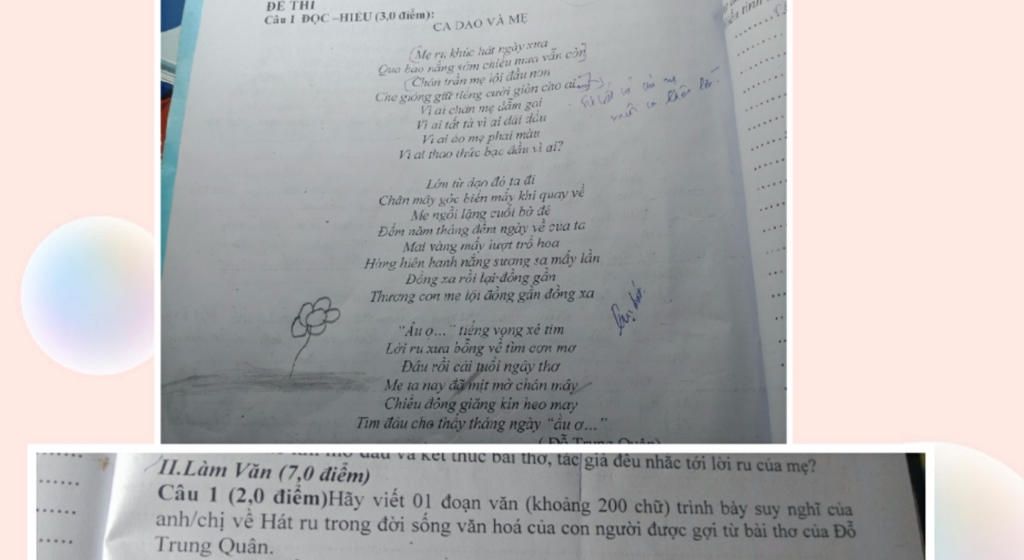 ĐỀ THI
Câu I ĐỌC –HIỂU (3,0 điểm):
CA DAO VÀ MẸ
Mẹ ru khúc hát ngày xưa
Qua bao nắng sớm chiều mưa vẫn còn
Chân trần mẹ lội đầu non
Che giông giữ tiếng cười giòn cho ai
Vì ai chân mẹ dẫm gai
Vì ai tất tả vì ai dãi dầu
Vì ai áo mẹ phai màu
Vì ai thao thức bạc đầu vì ai?
Lớn từ dạo đó ta đi
Chân mây góc biển mấy khi quay về
Mẹ ngồi lặng cuối bờ đê
Đếm năm tháng đếm ngày về của ta
Mai vàng mấy lượt trổ hoa
Hàng hiên hanh nắng sương sa mấy lần
Đồng xa rồi lại đồng gần
Thương con mẹ lội đồng gần đồng xa
"Ầu ơ..." tiếng vọng xé tim
Lời ru xưa bỗng về tìm cơn mơ
Đâu rồi cái tuổi ngây thơ
Mẹ ta nay đã mịt mờ chân mây
Chiều đông giăng kín heo may
Tìm đâu cho thấy tháng ngày "ầu ơ..."
(Đỗ Trung Quân)
đầu và kết thúc bài thơ, tác giả đều nhắc tới lời ru của mẹ?
II.Làm Văn (7,0 điểm)
Câu 1 (2,0 điểm)Hãy viết 01 đoạn văn (khoảng 200 chữ) trình bày suy nghĩ của
anh/chị về Hát ru trong đời sống văn hoá của con người được gợi từ bài thơ của Đỗ
Trung Quân.